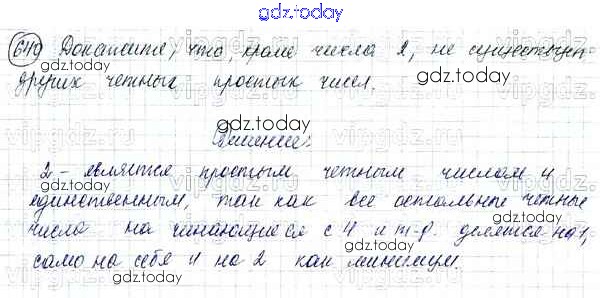 gdz.today
649 Докажите, что, кроме числа 2, не существует
gdz.today
других четных простых чисел.
gdz.today
Решение:
2 - является простым четным числом и
gdz.today
единственным, так как все остальные четные
числа на чинающиеся с 4 и т-д. делятся на 1,
само на себя и на 2 как минимум.
gdz.today